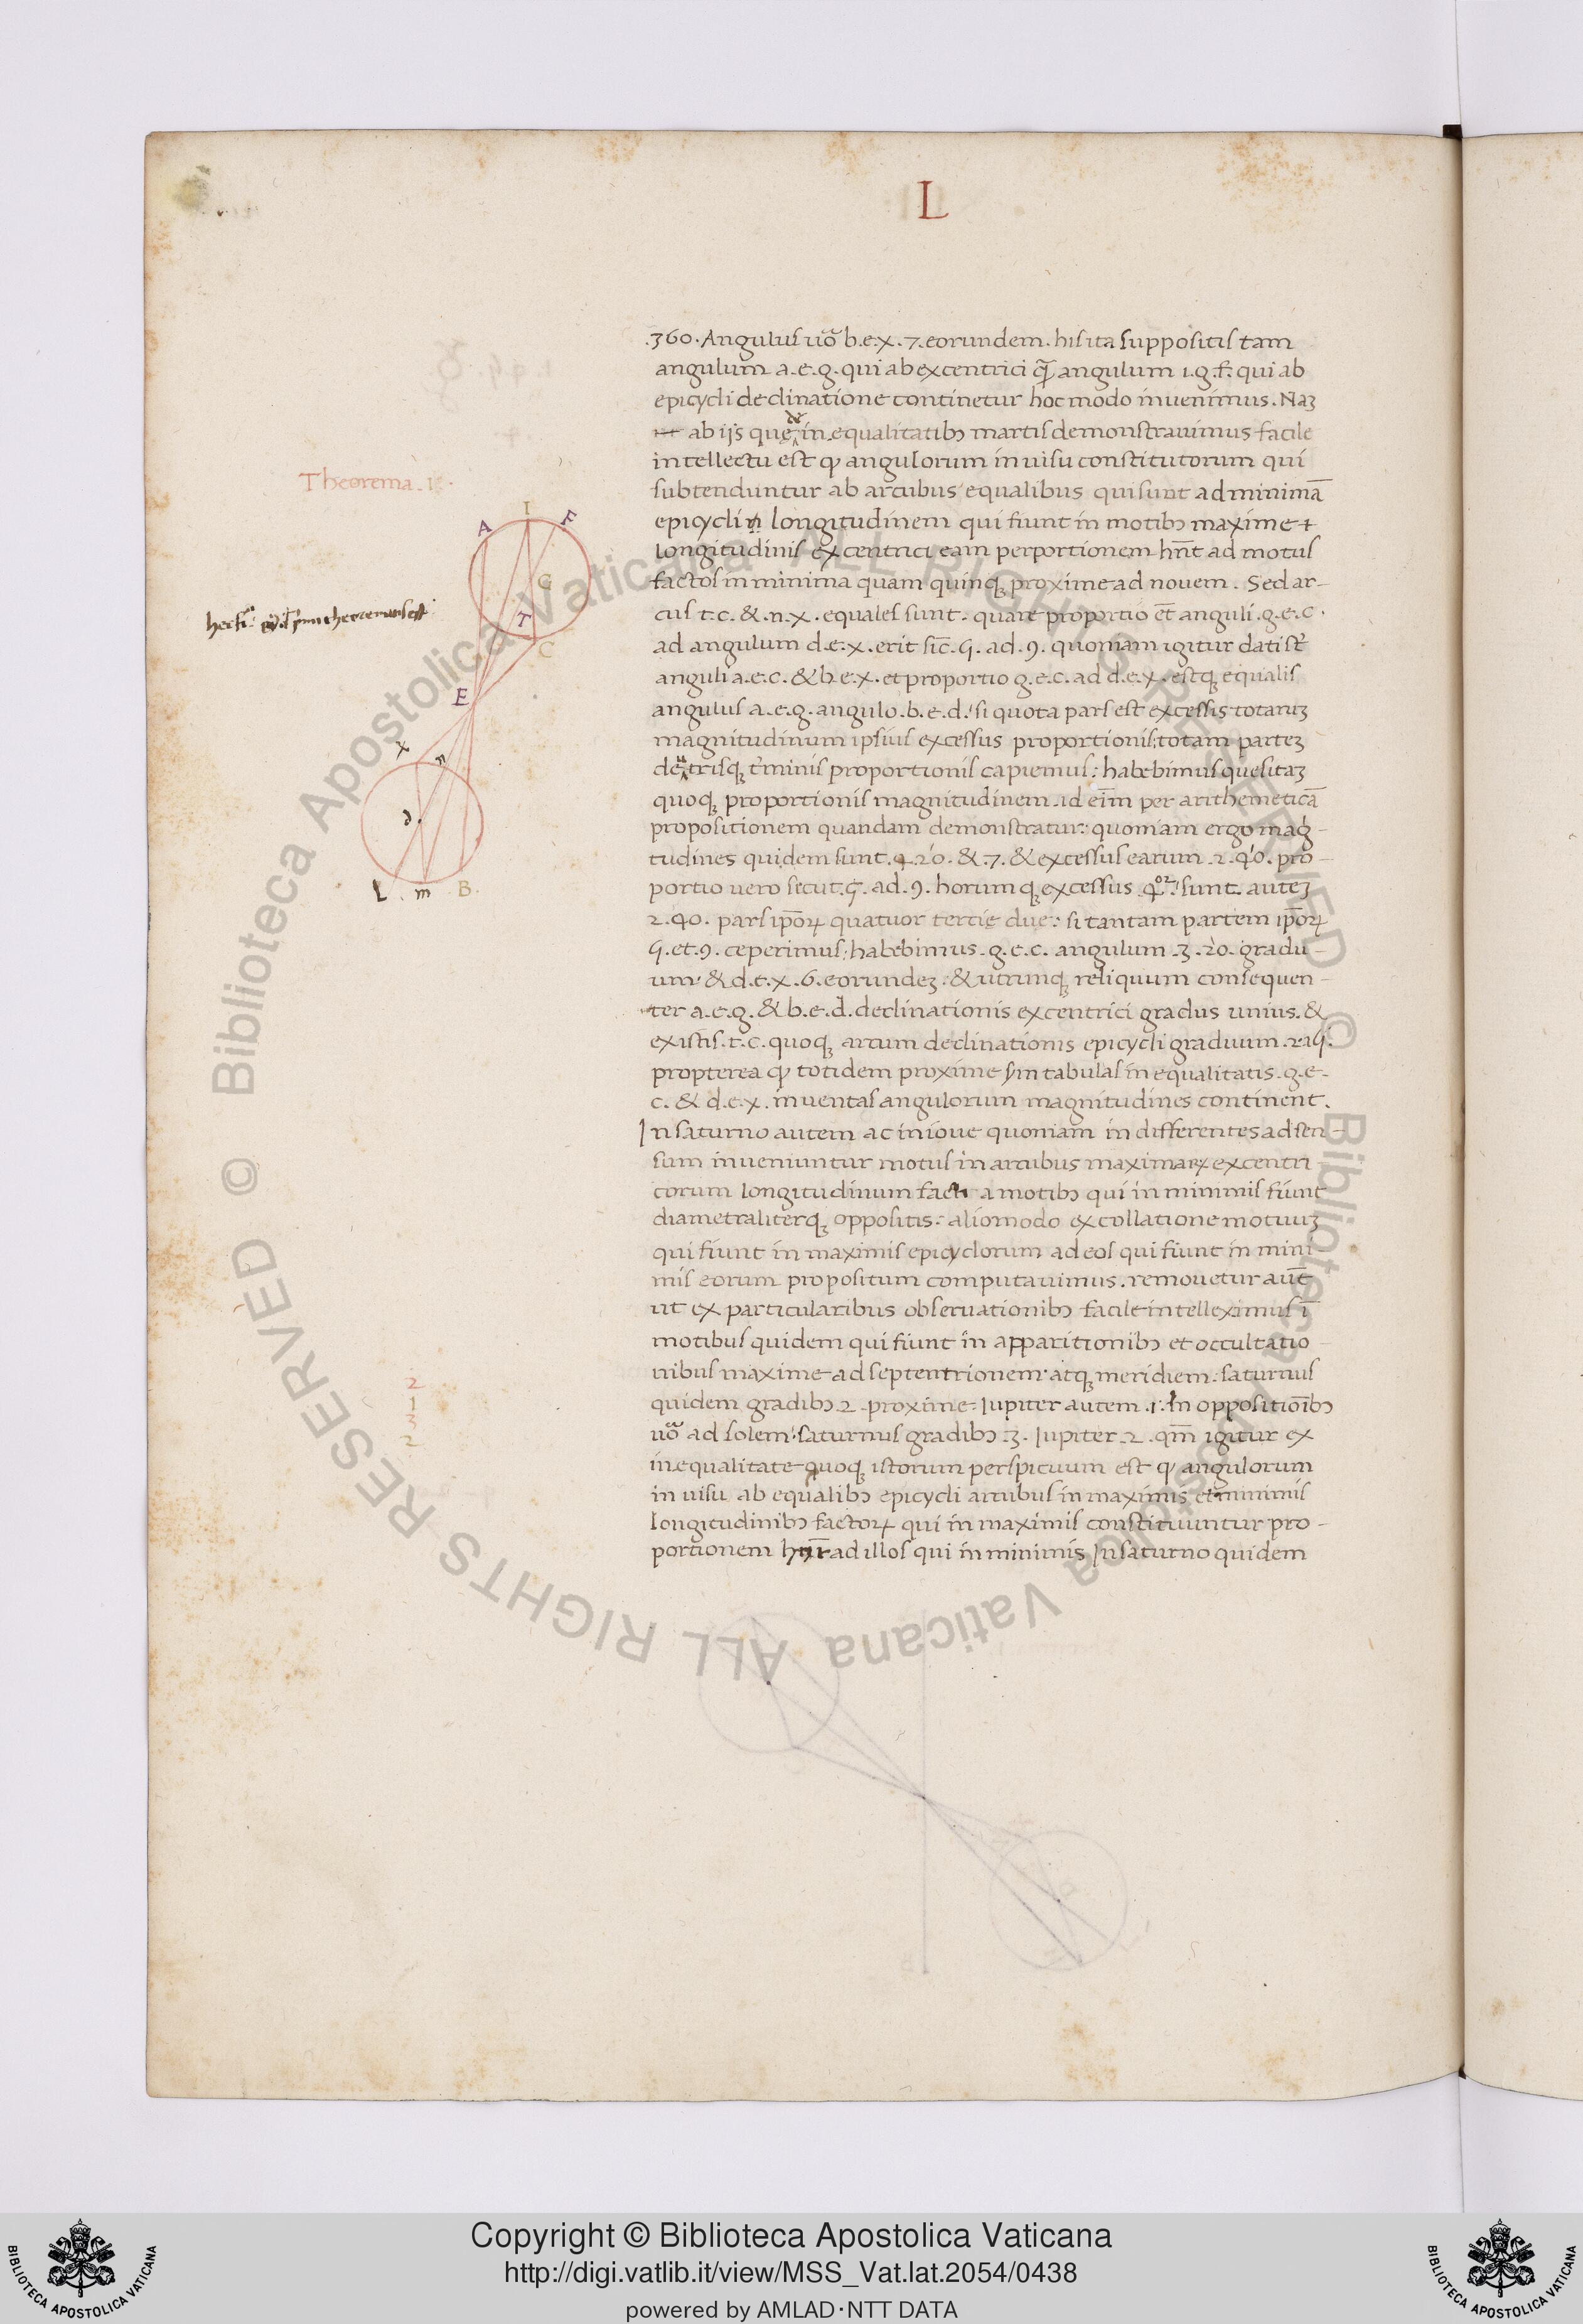 L
.360. Angulus uo᷒ b.e.x.7. eorundem. his ita suppositis tam
angulum a.e.g. qui ab excentrici q̃ angulum i.g.f. qui ab
epicycli declinatione continetur hoc modo inuenimus. Naꝫ
ab ijs quę de inequalitatibꝫ martis demonstrauimus facile
intellectu est ꝙ angulorum in uisu constitutorum qui
subtenduntur ab arcubus equalibus qui sunt ad minimā
epicycli longitudinem qui fiunt in motibꝫ maxime
longitudinis excentrici eam perportionem hn̄t ad motus
factos in minima quam quinqꝫ proxime ad nouem. Sed ar-
cus t.c. & .n.x. equales sunt. quare proportio et̄ anguli .g.e.c.
ad angulum d.e.x. erit sic̄. 5. ad .9. quoniam igitur dati st̄
anguli a.e.c. & b.e.x. et proportio g.e.c. ad d.e.x. estqꝫ equalis
angulus a.e.g. angulo .b.e.d. si quota pars est excessis totarūꝫ
magnitudinum ipsius excessus proportionis: totam parteꝫ
de utrisqꝫ t̄minis proportionis capiemus: habebimus quesitaꝫ
quoqꝫ proportionis magnitudinem. id eim̄ per arithemeticā
propositionem quandam demonstratur: quoniam ergo mag-
tudines quidem sunt .4.20. & .7. & excessus earum .2.40. pro-
portio uero secut. 5. ad .9. horumqꝫ excessus .4or. sunt. auteꝫ
2.40. pars ip̄oꝝ quatuor tertię due: si tantam partem ip̄oꝝ
5. et .9. ceperimus: habebimus .g.e.c. angulum .3.20. gradu-
um & d.e.x.6. eorundeꝫ. & utrunqꝫ reliquum consequen-
ter a.e.g. & b.e.d. declinationis excentrici gradus unius. &
existis .t.c. quoqꝫ arcum declinationis epicycli graduum .2.15.
propterea ꝙ totidem proxime in tabulas inequalitatis .g.e.
c. & d.e.x. inuentas angulorum magnitudines continent.
In saturno autem ac in ioue quoniam indifferentes ad sen-
sum inueniuntur motus in arcubus maximaꝝ excentri-
corum longitudinum facti a motibꝫ qui in minimis fiunt
diametraliterqꝫ oppositis: alio modo ex collatione motuuꝫ
qui fiunt in maximis epicyclorum ad eos qui fiunt in mini
mis eorum propositum computauimus. remouetur aut̄
ut ex particularibus obseruationibꝫ facile intelleximus ī
motibus quidem qui fiunt in apparitionibꝫ et occultatio-
nibus maxime ad septentrionem atqꝫ meridiem. saturnus
quidem gradibꝫ .2. proxime. Iupiter autem .1. In oppositiōibꝫ
uo᷒ ad solem: saturnus gradibꝫ .3. Iupiter .2. qm̄ igitur ex
inequalitate quoqꝫ istorum perspicuum est ꝙ angulorum
in uisu ab equalibꝫ epicycli arcubus in maximis et minimis
longitudinibꝫ factoꝝ qui in maximis constituuntur pro-
portionem ad illos qui in minimis In saturno quidem
Theorema
I
A
F
G
T
C
E
X
n
d.
L
m
B.
2
1
3
2
Copyright © Biblioteca Apostolica Vaticana
http://digi.vatlib.it/view/MSS_Vat.lat.2054/0438
powered by AMLAD·NTT DATA
BIBLIOTECA APOSTOLICA VATICANA
BIBLIOTECA APOSTOLICA VATICANA
© Biblioteca Apostolica Vaticana ALL RIGHTS RESERVED © Biblioteca Apostolica Vaticana ALL RIGHTS RESERVED